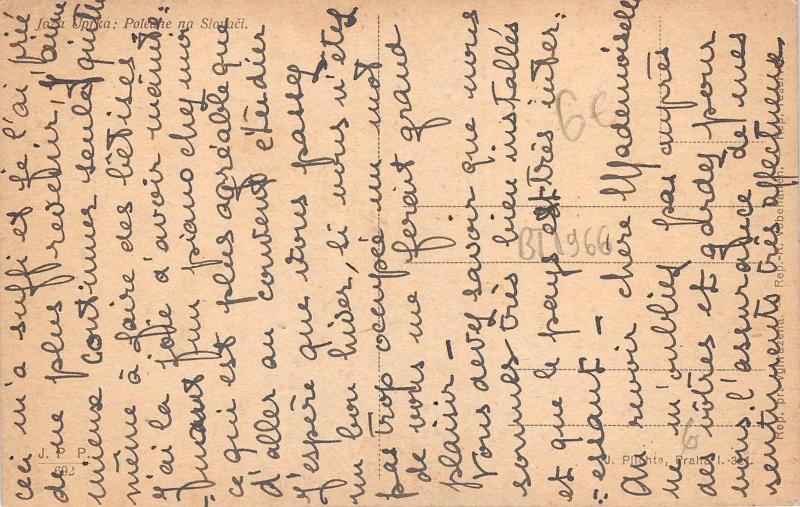 Joža Úprka: Poledne na Slovači.
ceci m'a suffi et je l'ai prié
de ne plus revenir, j'aime
mieux continuer seule, quitte
même à faire des bêtises.
J'ai la joie d'avoir mainte-
-nant un piano chez moi
ce qui est plus agréable que
d'aller au couvent étudier
J'espère que vous passez
un bon hiver, si vous n'étez
pas trop occupée un mot
de vous me ferait grand
plaisir -
Vous devez savoir que nous
sommes très bien installés
et que le pays est très inter-
-essant -
Au revoir chère Mademoiselle
ne m'oubliez pas auprès
des vôtres et gardez pour
vous l'assurance de mes
sentiments très affectueux
6€
BT1966
6
J. P. P.
692
J. Plichta, Praha I.-351.
Rep. prohrazena. Rep.